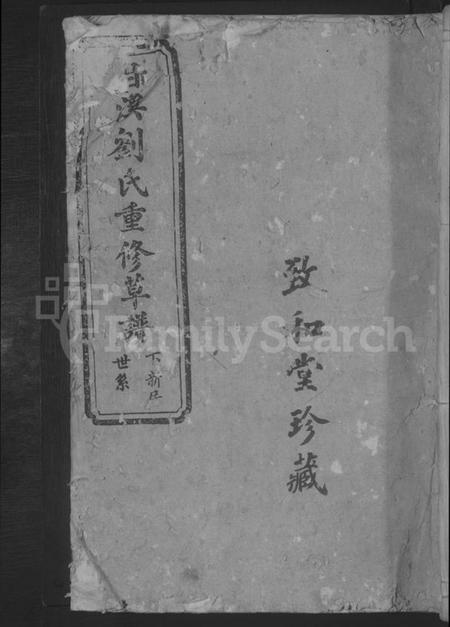 漢劉氏重修草譜
下新屋
世系
致和堂珍藏
FamilySearch